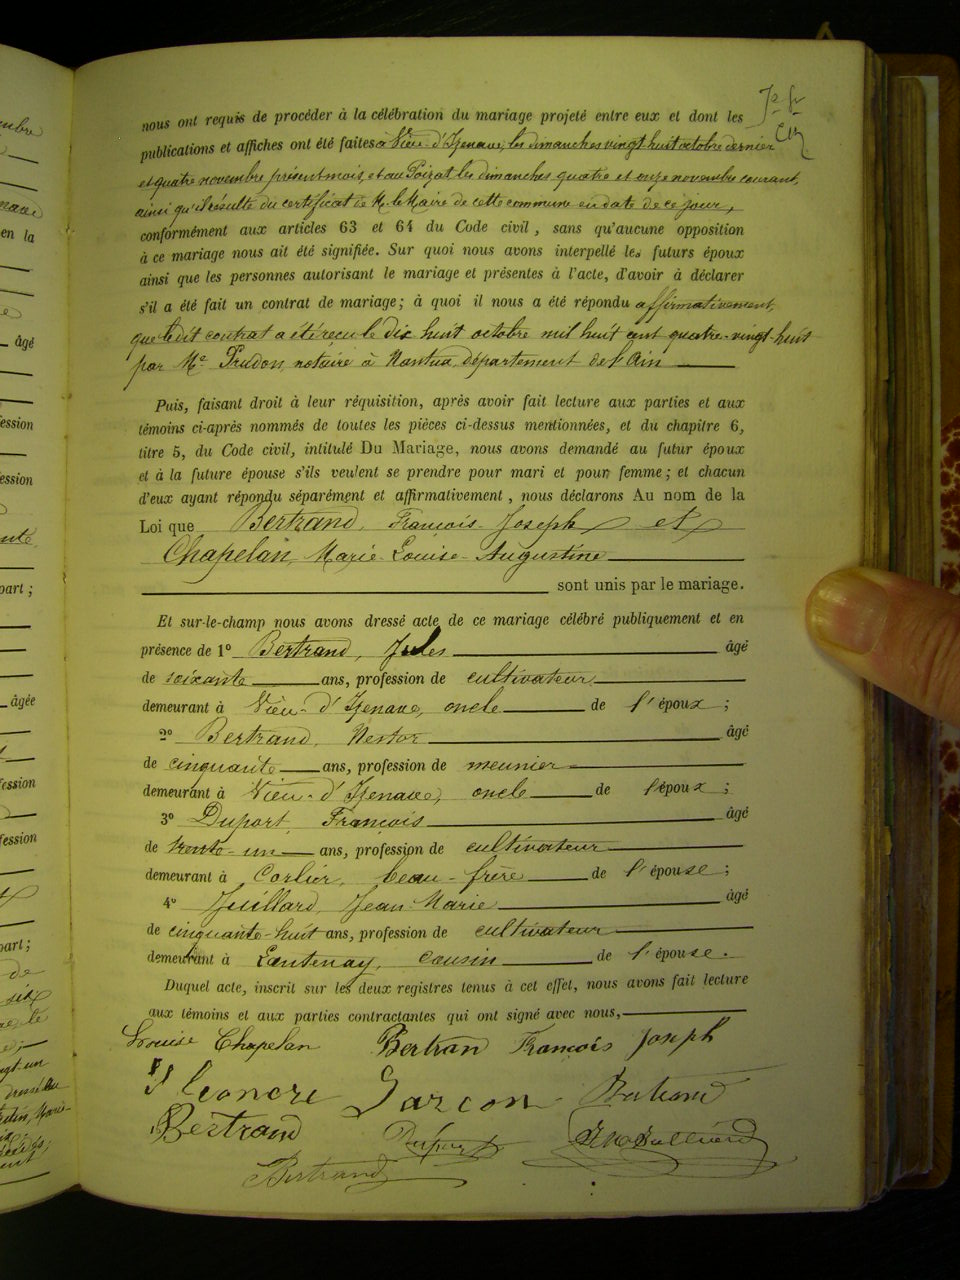 nous ont requis de procéder à la célébration du mariage projeté entre eux et dont les
publications et affiches ont été faites à Vieu-d'Izenave, les dimanches vingt huit octobre dernier
et quatre novembre présent mois, et au Poizat les dimanches quatre et onze novembre courant,
ainsi qu'il résulte du certificat de M. le Maire de cette commune en date de ce jour,
conformément aux articles 63 et 64 du Code civil, sans qu'aucune opposition
à ce mariage nous ait été signifiée. Sur quoi nous avons interpellé les futurs époux
ainsi que les personnes autorisant le mariage et présentes à l'acte, d'avoir à déclarer
s'il a été fait un contrat de mariage; à quoi il nous a été répondu affirmativement,
que ledit contrat a été reçu le dix huit octobre mil huit cent quatre-vingt-huit
par Me Prudon, notaire à Nantua, département de l'Ain
Puis, faisant droit à leur réquisition, après avoir fait lecture aux parties et aux
témoins ci-après nommés de toutes les pièces ci-dessus mentionnées, et du chapitre 6,
titre 5, du Code civil, intitulé Du Mariage, nous avons demandé au futur époux
et à la future épouse s'ils veulent se prendre pour mari et pour femme; et chacun
d'eux ayant répondu séparément et affirmativement, nous déclarons Au nom de la
Loi que Bertrand, François-Joseph et
Chapelan, Marie-Louise-Augustine
sont unis par le mariage.
Et sur-le-champ nous avons dressé acte de ce mariage célébré publiquement et en
présence de 1º Bertrand, Jules âgé
de soixante ans, profession de cultivateur
demeurant à Vieu-d'Izenave, oncle de l'époux;
2º Bertrand, Nestor âgé
de cinquante ans, profession de meunier
demeurant à Vieu-d'Izenave, oncle de l'époux;
3º Duport, François âgé
de trente-un ans, profession de cultivateur
demeurant à Corlier, beau-frère de l'épouse;
4º Juillard, Jean-Marie âgé
de cinquante-huit ans, profession de cultivateur
demeurant à Lantenay, cousin de l'épouse.
Duquel acte, inscrit sur les deux registres tenus à cet effet, nous avons fait lecture
aux témoins et aux parties contractantes qui ont signé avec nous,
Louise Chapelan Bertran François Joseph
Bertrand
Bertrand Duport
Bertrand